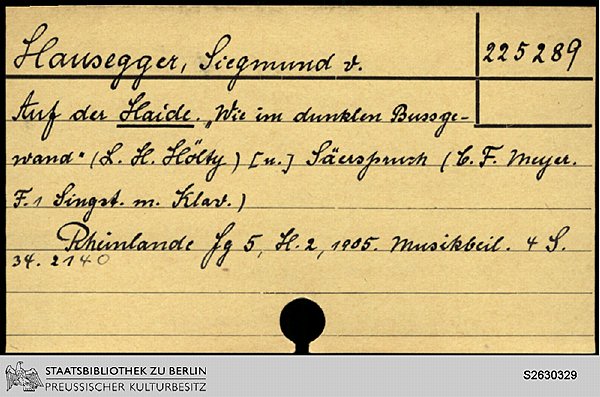 Hausegger, Siegmund v.
225289
Auf der Haide. „Wie im dunklen Bussge-
wand" (L. H. Hölty) [u.] Säerspruch (C. F. Meyer.
F. 1 Singst. m. Klav.)
Rheinlande Jg 5, H. 2, 1905. Musikbeil. 4 S.
34. 2140
STAATSBIBLIOTHEK ZU BERLIN
PREUSSISCHER KULTURBESITZ
S2630329